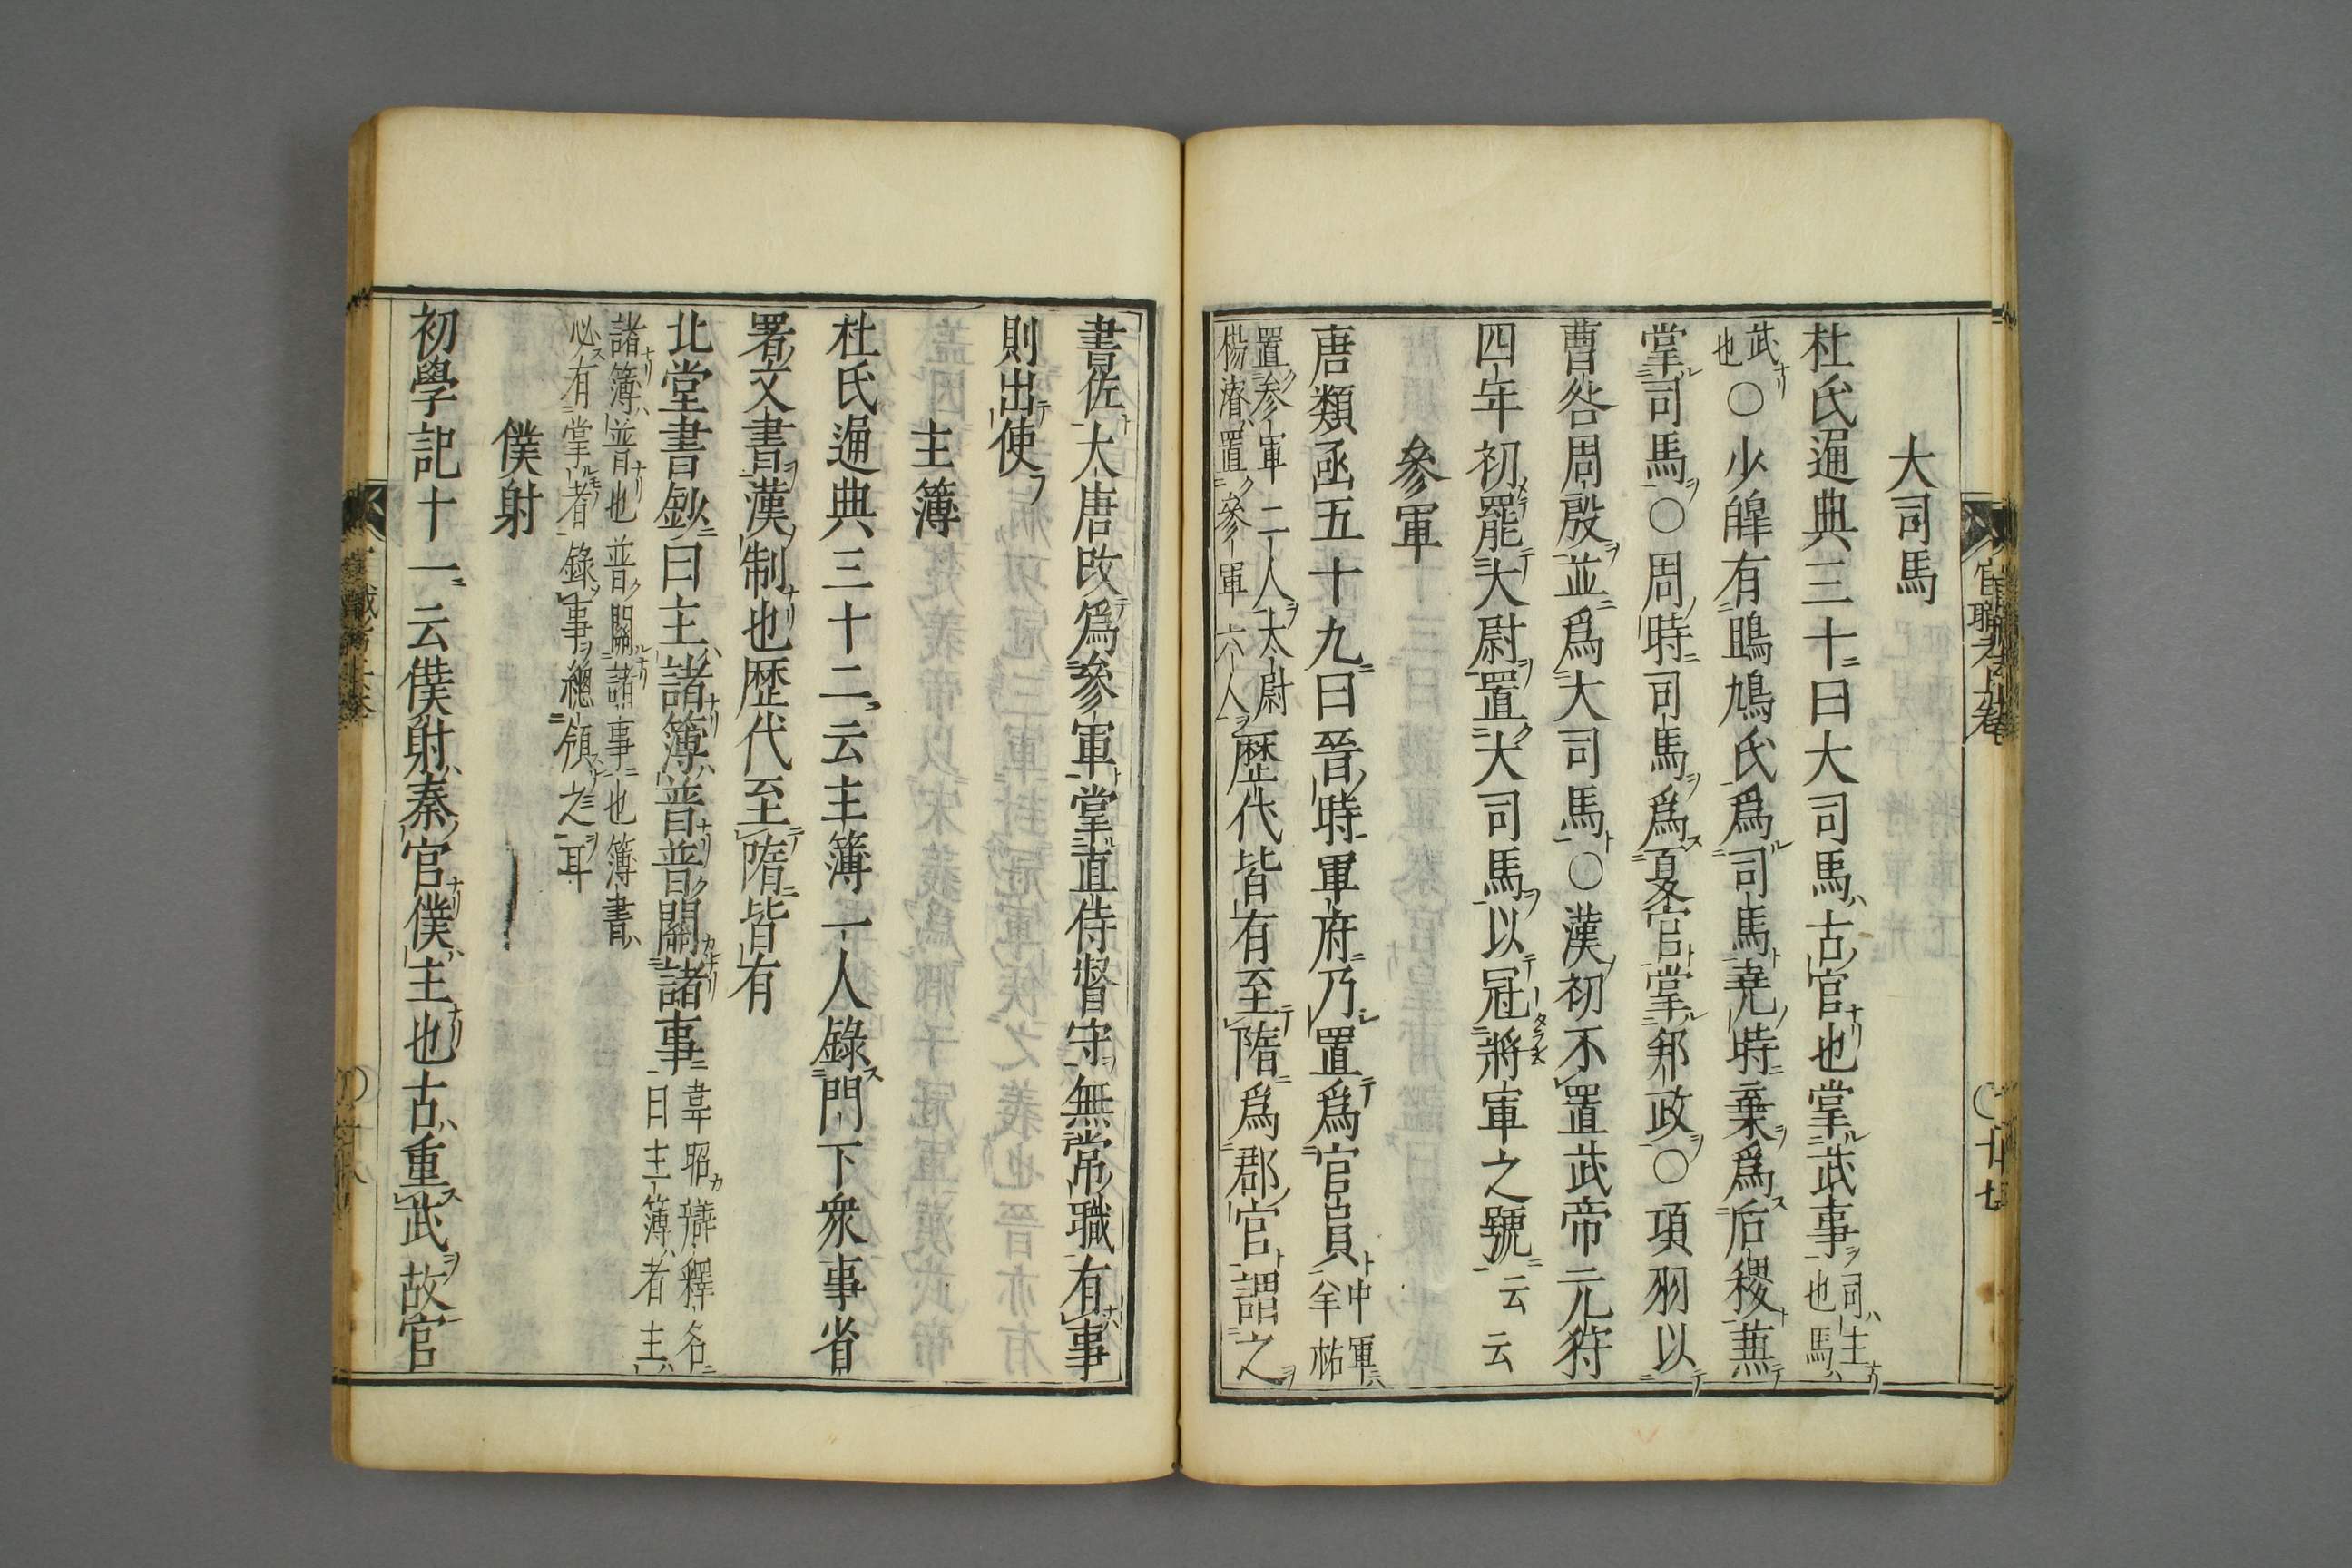 大司馬
杜氏通典三十曰大司馬古官也掌武事司主也馬
武也○少皞有鴡鳩氏爲司馬堯時棄爲后稷兼
掌司馬○周時司馬爲夏官掌邦政○項羽以
曹咎周殷並爲大司馬○漢初不置武帝元狩
四年初罷大尉置大司馬以冠將軍之號云云
參軍
唐類函五十九曰晉時軍府乃置爲官員中軍羊祜
置参軍二人太尉楊濬置參軍六人歴代皆有至隋爲郡官謂之
書佐大唐改爲參軍掌直侍督守無常職有事
則出使
主簿
杜氏通典三十二云主簿一人錄門下衆事省
署文書漢制也歴代至隋皆有
北堂書鈔曰主諸簿普普關諸事韋昭辯釋名曰主簿者主
諸簿普也普關諸事也簿書必有掌者錄事總領之耳
僕射
初學記十一云僕射秦官僕主也古重武故官
官職考上卷
〇廿七